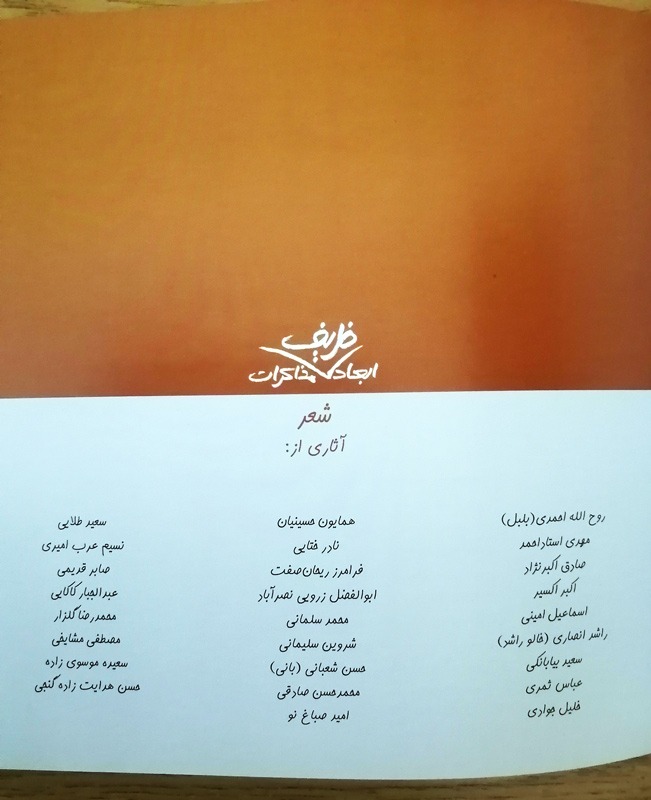 ابعاد ظریف مذاکرات
شعر
آثاری از:
روح الله احمدی (بلبل)
مهدی استاداحمد
صادق اکبرنژاد
اکبر اکسیر
اسماعیل امینی
راشد انصاری (خالو راشد)
سعید بیابانکی
عباس ثمری
خلیل جوادی
همایون حسینیان
نادر ختایی
فرامرز ریحان‌صفت
ابوالفضل زرویی نصرآباد
محمد سلمانی
شروین سلیمانی
حسن شعبانی (بانی)
محمدحسن صادقی
امید صباغ نو
سعید طلایی
نسیم عرب امیری
صابر قدیمی
عبدالجبار کاکایی
محمدرضا گلزار
مصطفی مشایخی
سعیده موسوی زاده
حسن هدایت زاده گنجی